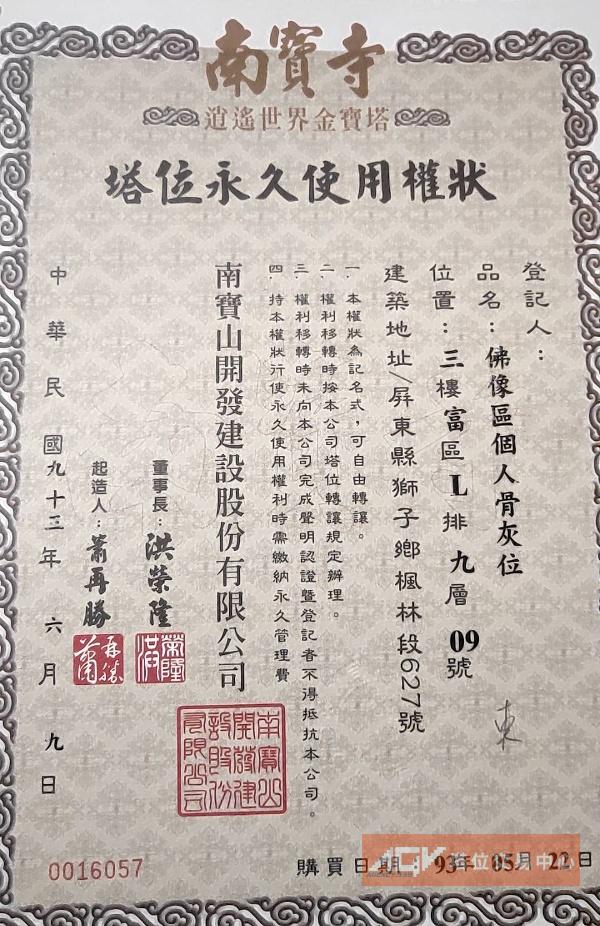 南寶寺
逍遙世界金寶塔
塔位永久使用權狀
登記人：
品名：佛像區個人骨灰位
位置：三樓富區L排九層09號
建築地址/屏東縣獅子鄉楓林段627號
一．本權狀為記名式，可自由轉讓。
二．權利移轉時按本公司塔位轉讓規定辦理。
三．權利移轉時未向本公司完成聲明認證暨登記者不得抵抗本公司。
四．持本權狀行使永久使用權利時需繳納永久管理費
南寶山開發建設股份有限公司
董事長：洪榮隆
洪榮隆
起造人：蕭再勝
蕭再勝
中華民國九十三年六月九日
南寶山開發建設股份有限公司
東
0016057
購買日期：93年05月22日
塔位交易中心